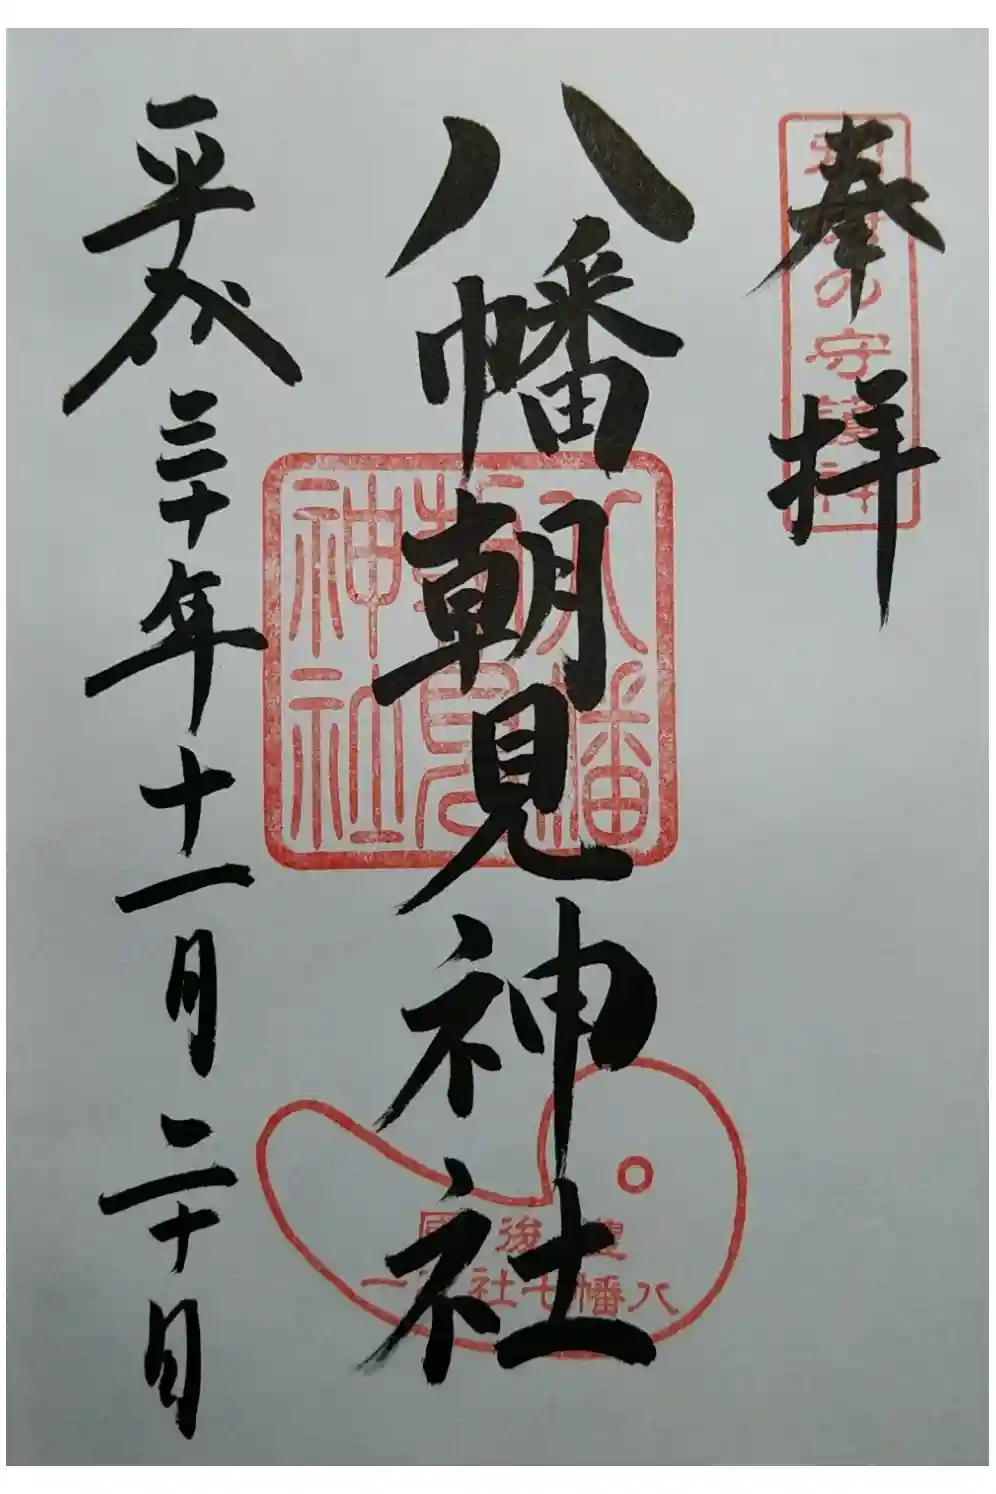 奉拝
の守護神
八幡朝見神社
八幡
朝見
神社
豊後國
八幡七社
一
平成三十年十一月二十日